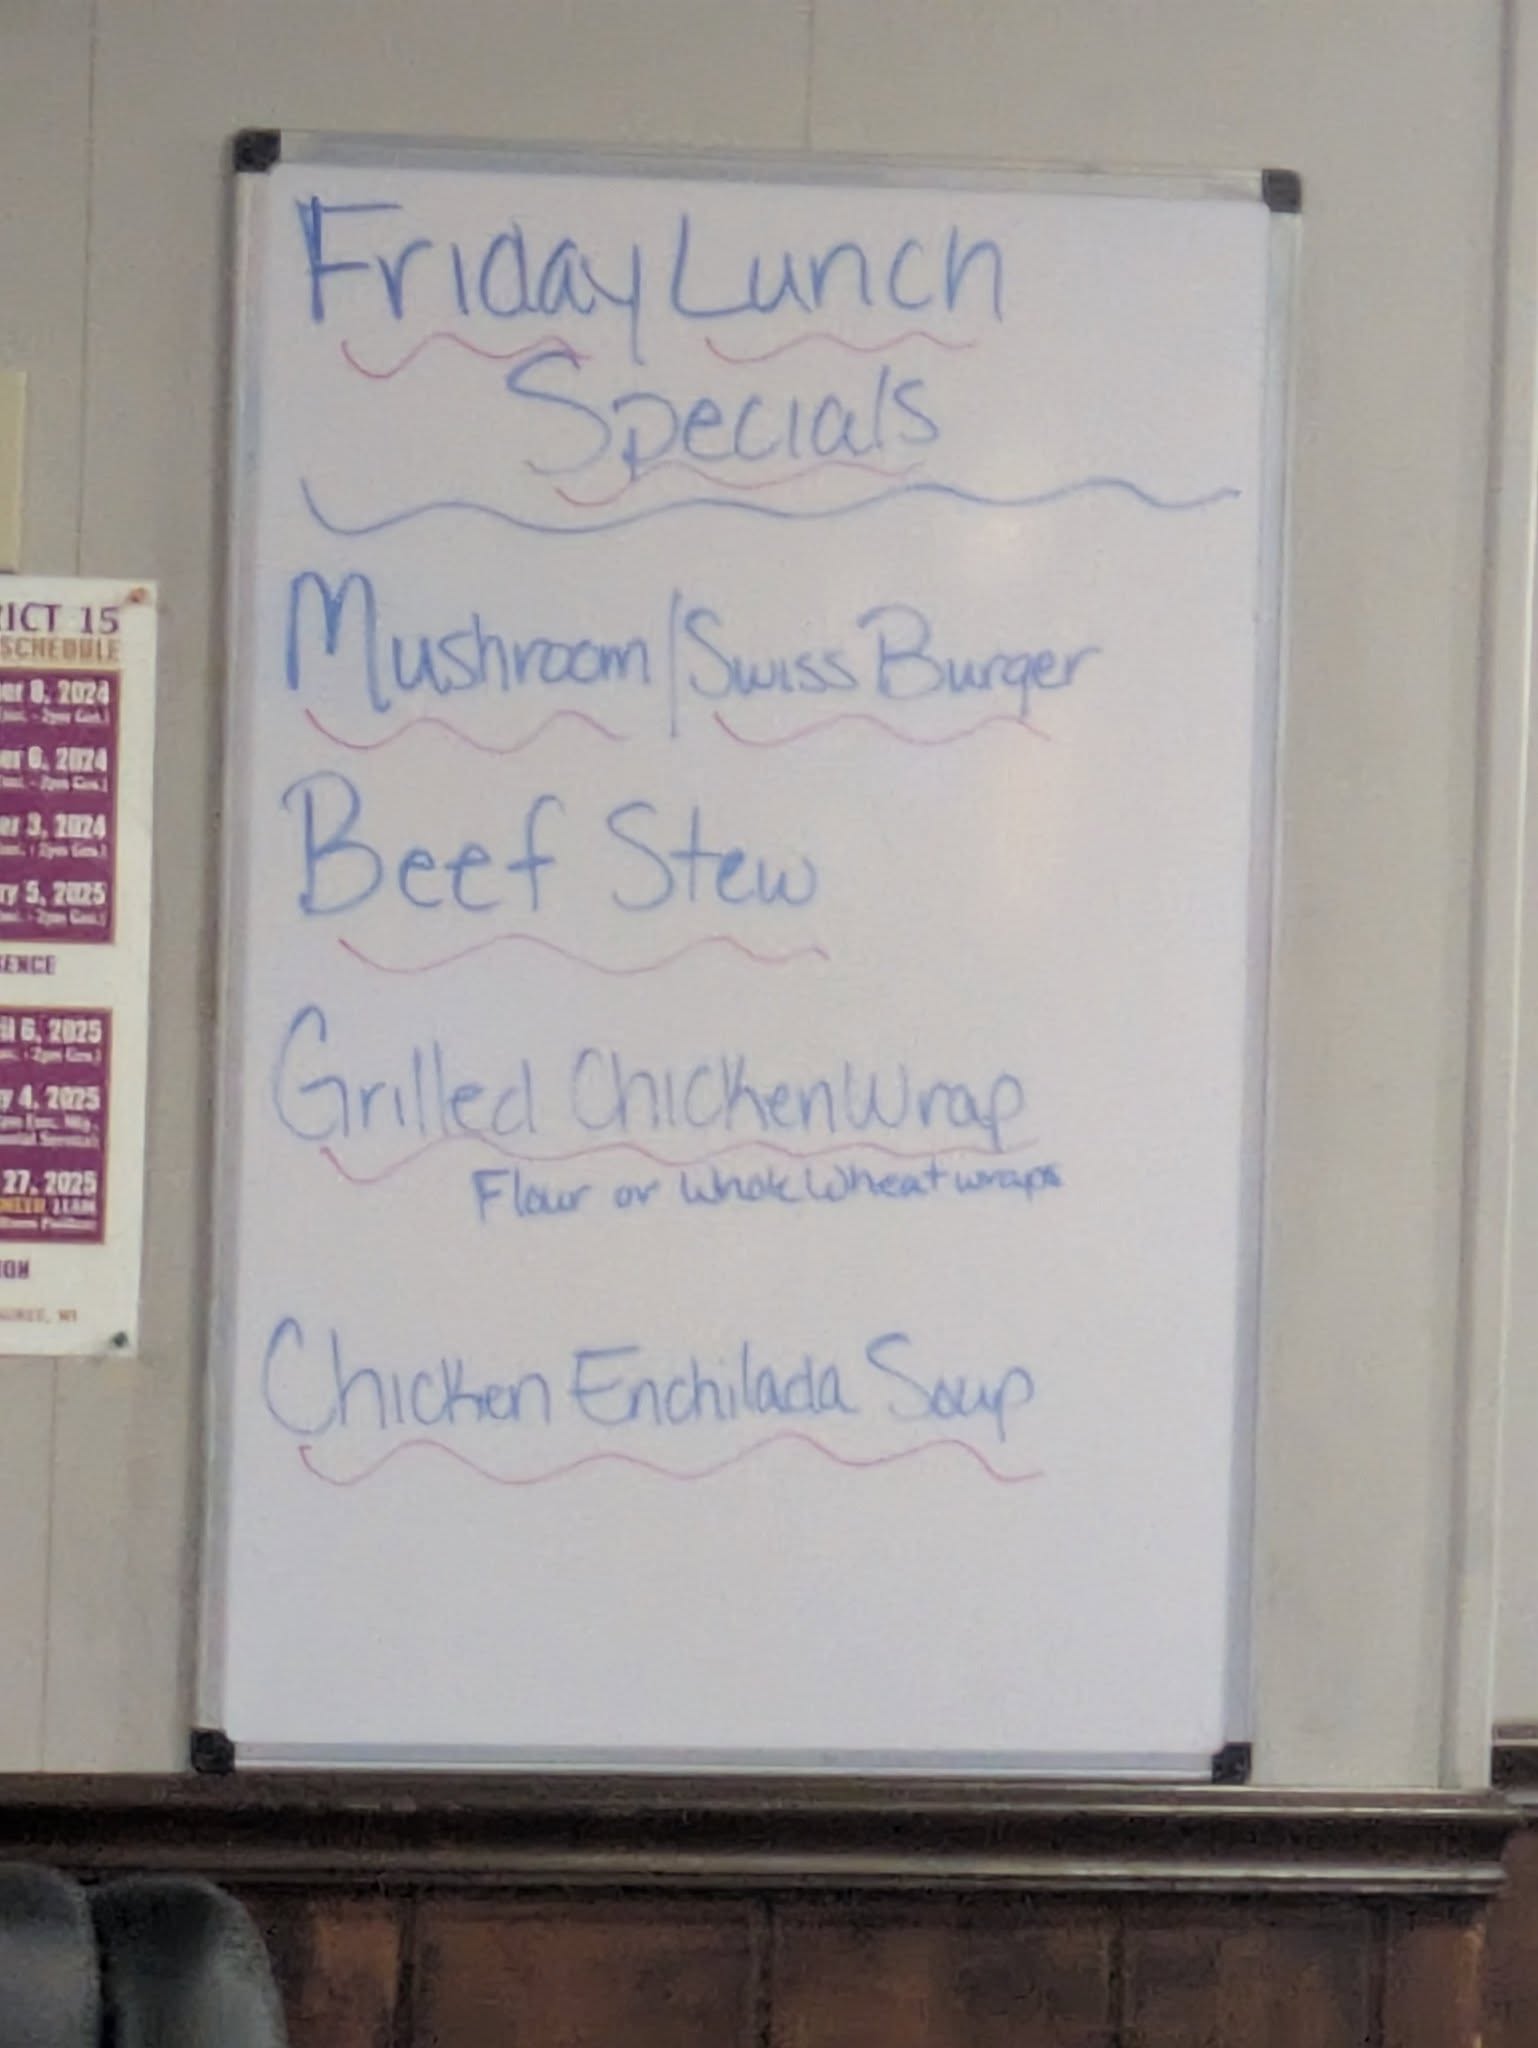 Friday Lunch
Specials
Mushroom/Swiss Burger
Beef Stew
Grilled Chicken Wrap
Flour or Whole Wheat wraps
Chicken Enchilada Soup
RICT 15
SCHEDULE
er 8, 2024
er 6, 2024
er 3, 2024
ry 5, 2025
ENCE
il 6, 2025
y 4, 2025
27, 2025
11AM
ION